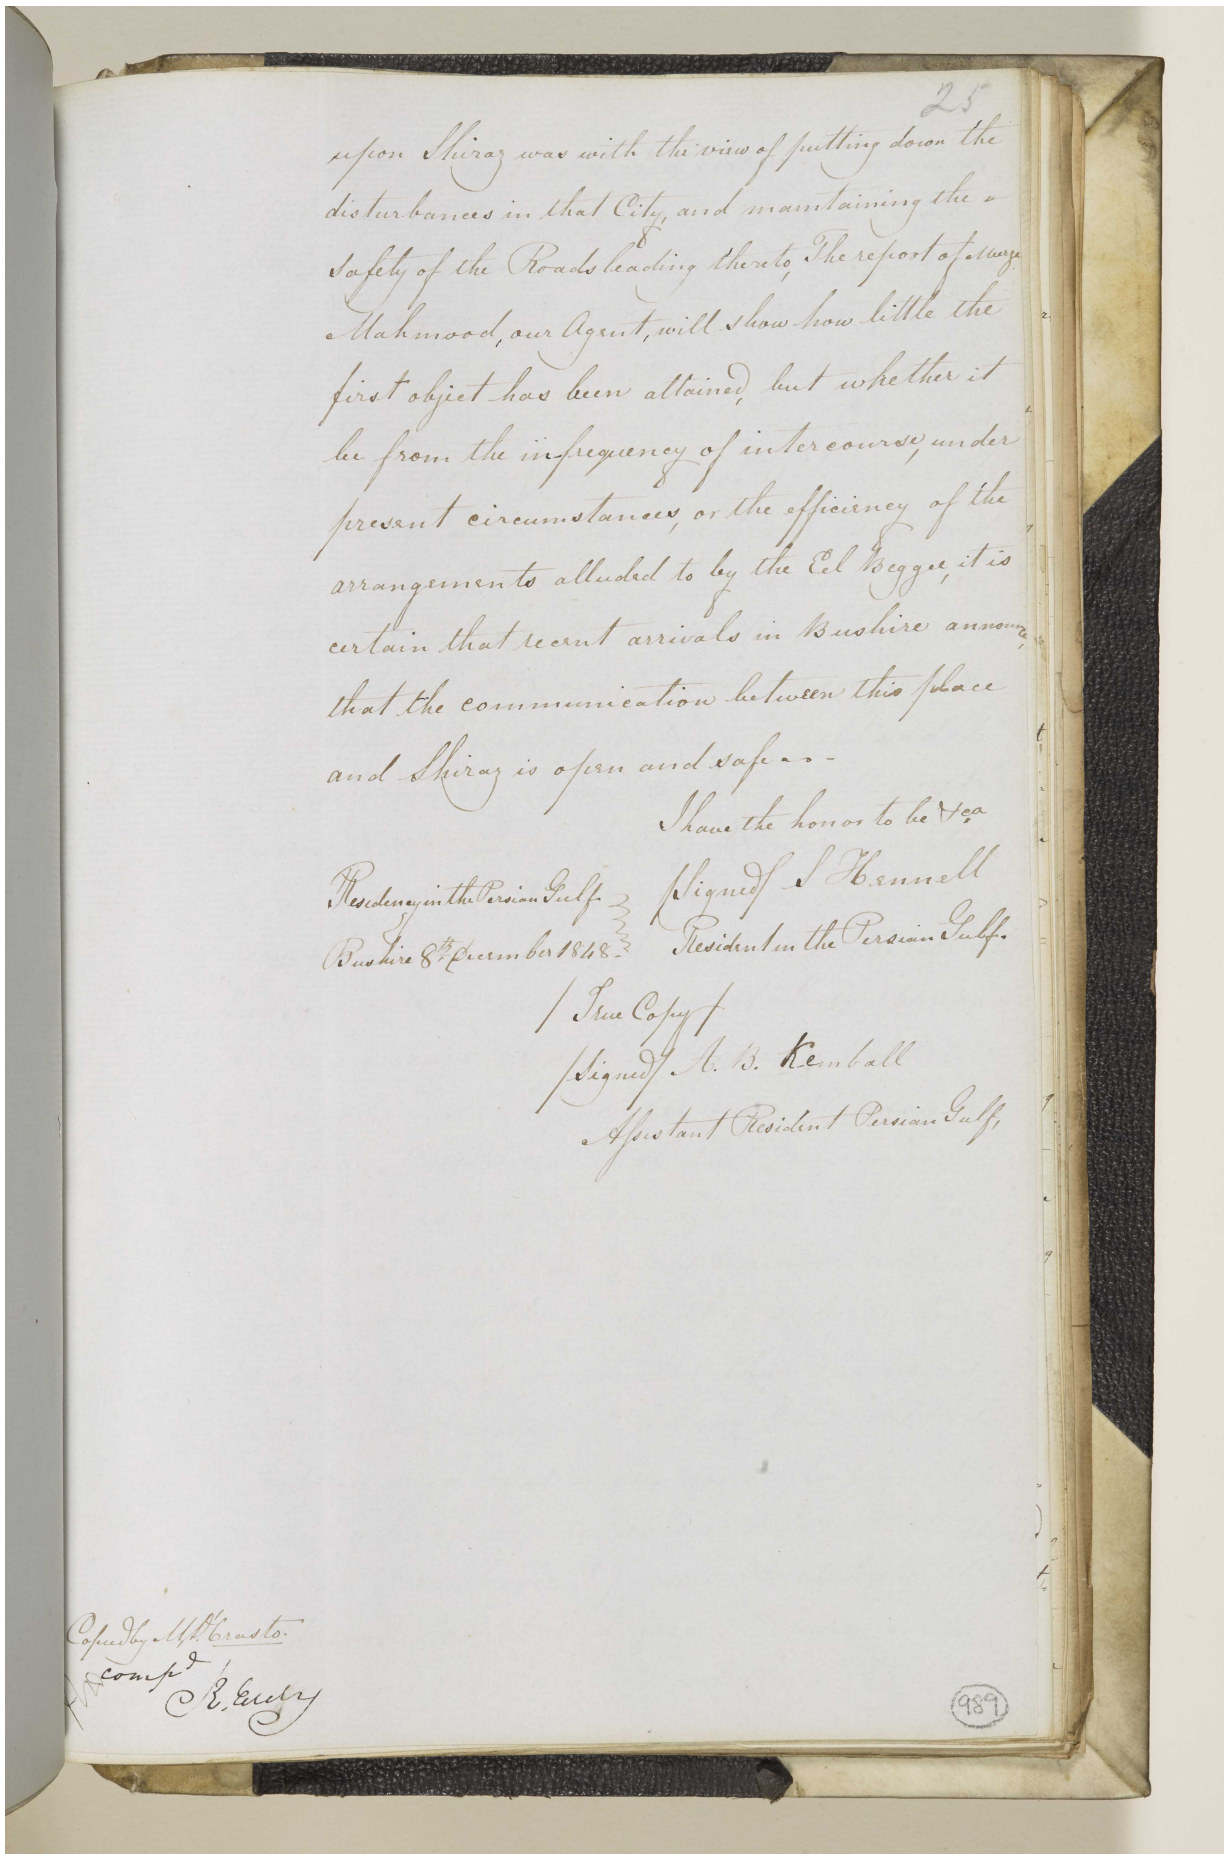 25
upon Shiraz was with the view of putting down the
disturbances in that City, and maintaining the
safety of the Roads leading thereto, The report of Meerza
Mahmood, our Agent, will show how little the
first object has been attained, but whether it
be from the infrequency of intercourse, under
present circumstances, or the efficiency of the
arrangements alluded to by the Eel Beggee, it is
certain that recent arrivals in Bushire announce,
that the communication between this place
and Shiraz is open and safe - - -
I have the honor to be &ca
Residency in the Persian Gulf /Signed/ S Hennell
Bushire 8th December 1848 - Resident in the Persian Gulf.
/ True Copy /
/Signed/ A. B. Kemball
Assistant Resident Persian Gulf,
Copied by
compd
989